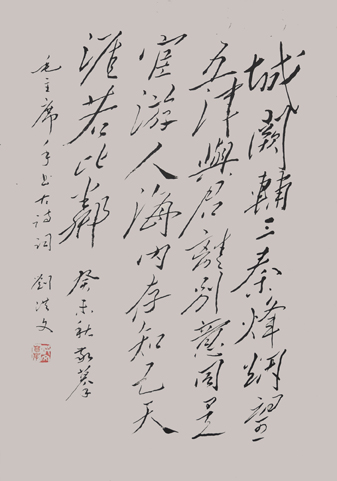 城阙辅三秦烽烟望
五津與君離别意同是
宦游人海内存知己天
涯若比鄰
癸未秋敬摹
毛主席手书古詩词
劉洪文